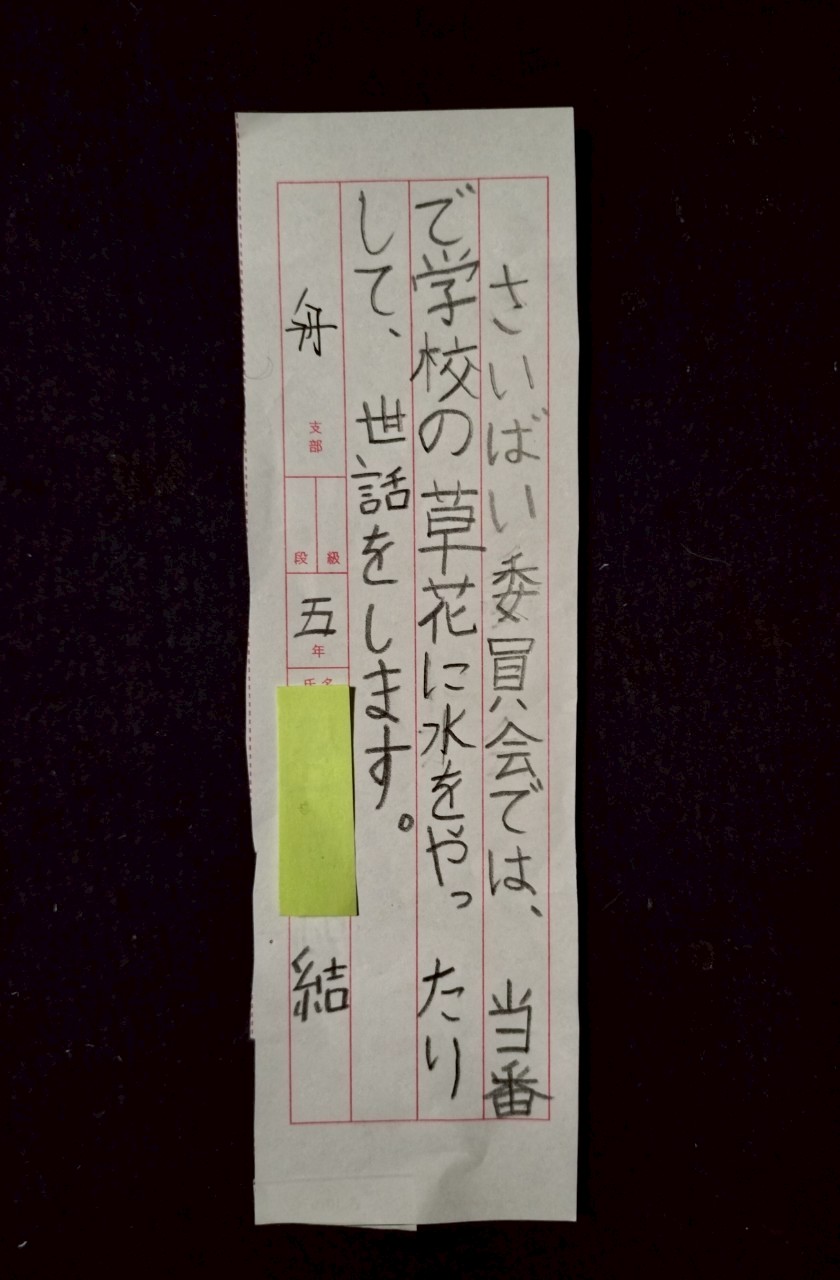 さいばい委員会では、当番
で学校の草花に水をやったり
して、世話をします。
舟 支部
段 級
五年
氏名
結